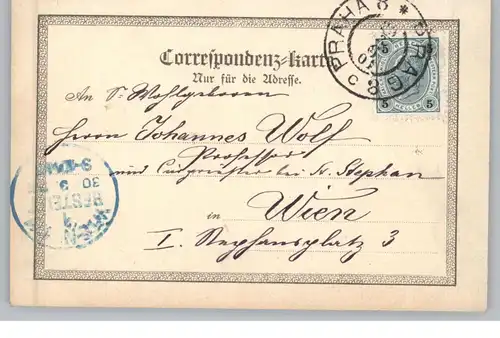 PRAHA 8 * PRAG 8 c
HELLER
5 5
Correspondenz-Karte
Nur für die Adresse.
An Sr. Wohlgeboren
Herrn Johannes Wolf
Professor
und Curpriester bei St. Stephan
in Wien
I. Stephansplatz 3
BESTELLT
WIEN
30 3